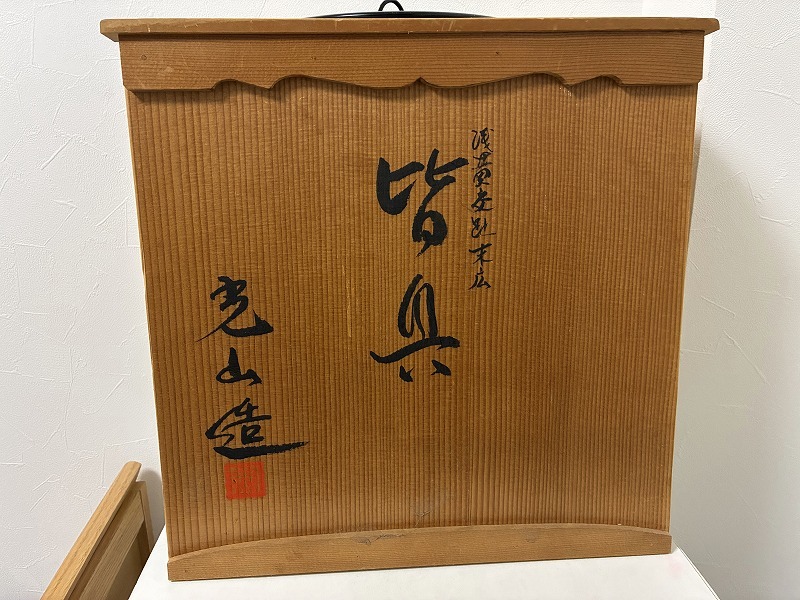 浅黄交趾末広
皆具
光山造